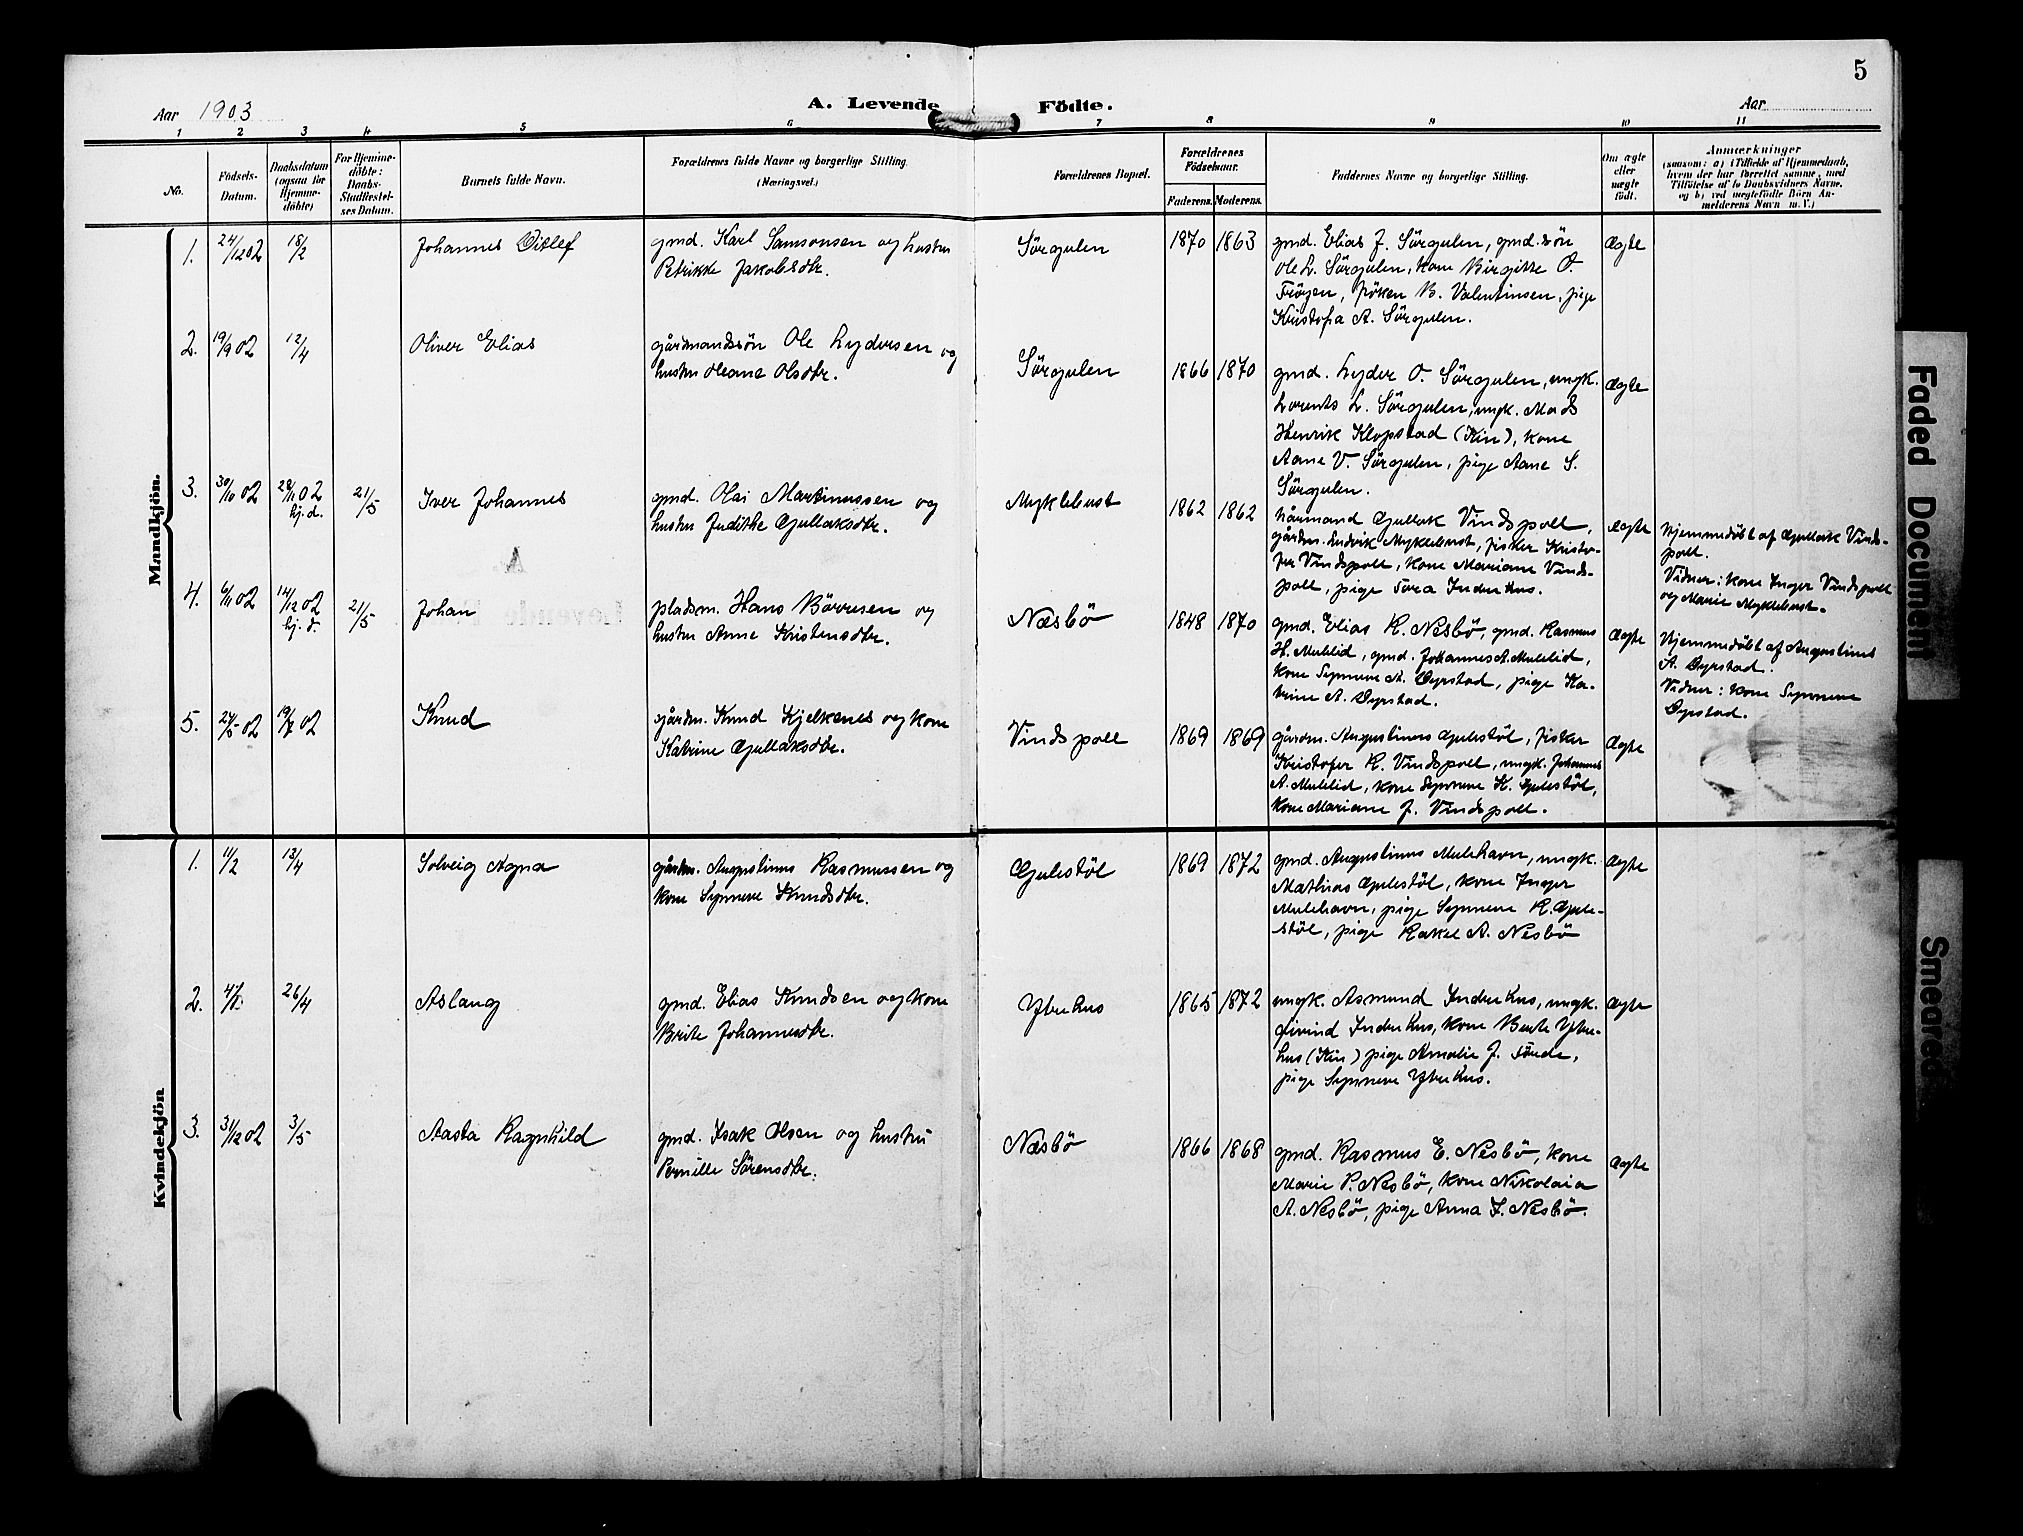 5
Aar 1903
A. Levende Födte.
Aar
1 2 3 4 5 6 7 8 9 10 11
No.
Födsels-
Datum.
Daabsdatum
(ogsaa for
Hjemme-
döbte)
For Hjemme-
döbte:
Daabs-
Stadfæstel-
ses Datum.
Barnets fulde Navn.
Forældrenes fulde Navne og borgerlige Stilling.
(Næringsvei.)
Forældrenes Bopæl.
Forældrenes
Födselsaar.
Faderens. Moderens.
Faddernes Navne og borgerlige Stilling.
Om ægte
eller
uægte
födt.
Anmærkninger
(saasom: a) i Tilfælde af Hjemmedaab,
hvem der har forrettet samme, med
Tilföielse af to Daabsvidners Navne,
og b) ved uægtefödte Börn An-
melderens Navn m. V.)
Mandkjön.
1. 24/12 02 18/2
Johannes Ditlef
gmd. Karl Samsonsen og hustru
Petrikke Jakobsdtr.
Sörgulen
1870 1863
gmd. Elias J. Sörgulen, gmd.sön
Ole L. Sörgulen, kone Birgitte O.
Fröyen, fröken B. Valentinsen, pige
Kristofa A. Sörgulen.
Ægte
2. 19/9 02 12/4
Oliver Elias
gårdmandssön Ole Lydersen og
hustru Oleane Olsdtr.
Sörgulen
1866 1870
gmd. Lyder O. Sörgulen, ungk.
Lorents L. Sörgulen, ungk. Mads
Henrik Klopstad (Kin), kone
Anne V. Sörgulen, pige Anne S.
Sörgulen.
Ægte
3. 30/10 02 28/11 02
hj. d.
21/5
Iver Johannes
gmd. Olai Martinussen og
hustru Judithe Gullaksdtr.
Myklebust
1862 1862
kårmand Gullak Vindspoll,
gårdm. Ludvik Myklebust, fisker Kristo-
fer Vindspoll, kone Mariane Vinds-
poll, pige Tora Inderhus.
Ægte
Hjemmedöbt af Gullak Vinds-
poll.
Vidner: kone Inger Vindspoll
og Marie Myklebust.
4. 6/11 02 14/12 02
hj. d.
21/5
Johan
pladsm. Hans Börresen og
hustru Anne Kristensdtr.
Næsbö
1848 1870
gmd. Elias R. Nesbö, gmd. Rasmus
H. Mulelid, gmd. Johannes A. Mulelid,
kone Synneve A. Dyrstad, pige Ka-
trine A. Dyrstad.
Ægte
Hjemmedöbt af Augustinus
A. Dyrstad.
Vidner: kone Synneve
Dyrstad.
5. 27/5 02 19/7 02
Knud
gårdm. Knud Kjelkenes og kone
Katrine Gullaksdtr.
Vindspoll
1869 1869
gårdm. Augustinus Gulestöl, fisker
Kristofer K. Vindspoll, ungk. Johannes
A. Mulelid, kone Synneve K. Gulestöl,
kone Mariane J. Vindspoll.
Ægte
Kvindekjön
1. 11/2 13/4
Solveig Agna
gårdm. Augustinus Rasmussen og
kone Synneve Knudsdtr.
Gulestöl
1869 1872
gmd. Augustinus Mulehavn, ungk.
Mathias Gulestöl, kone Inger
Mulehavn, pige Synneve R. Gule-
stöl, pige Rakel A. Nesbö
Ægte
2. 26/4
Aslaug
gmd. Elias Knudsen og kone
Brite Johannesdtr.
Ytrehus
1865 1872
ungk. Asmund Inderhus, ungk.
Eivind Inderhus, kone Berte Ytre-
hus (Kin) pige Amalie J. Förde,
pige Synneve Ytrehus.
Ægte
3. 31/12 02 3/5
Aasta Ragnhild
gmd. Isak Olsen og hustru
Pernille Sörensdtr.
Næsbö
1866 1868
gmd. Rasmus E. Nesbö, kone
Marie P. Nesbö, kone Nikolaia
A. Nesbö, pige Anna I. Nesbö.
Ægte
Faded Document
Smeared